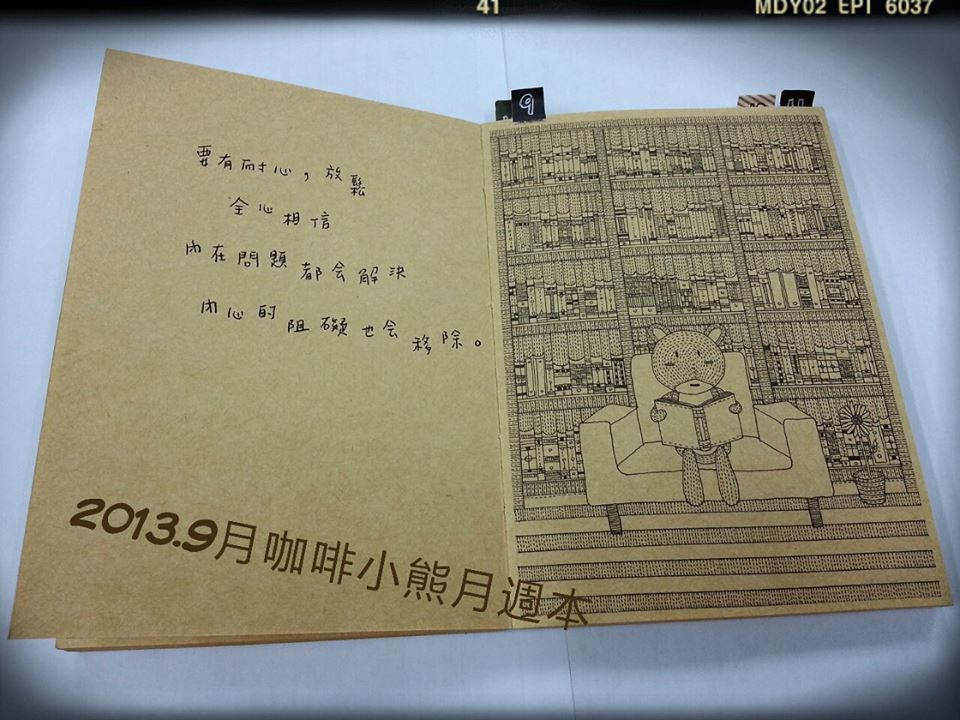 41
MDY02 EPT 6037
9
11
要有耐心，放鬆
全心相信
內在問題都会解決
內心的阻礙也会移除。
2013.9月咖啡小熊月週本